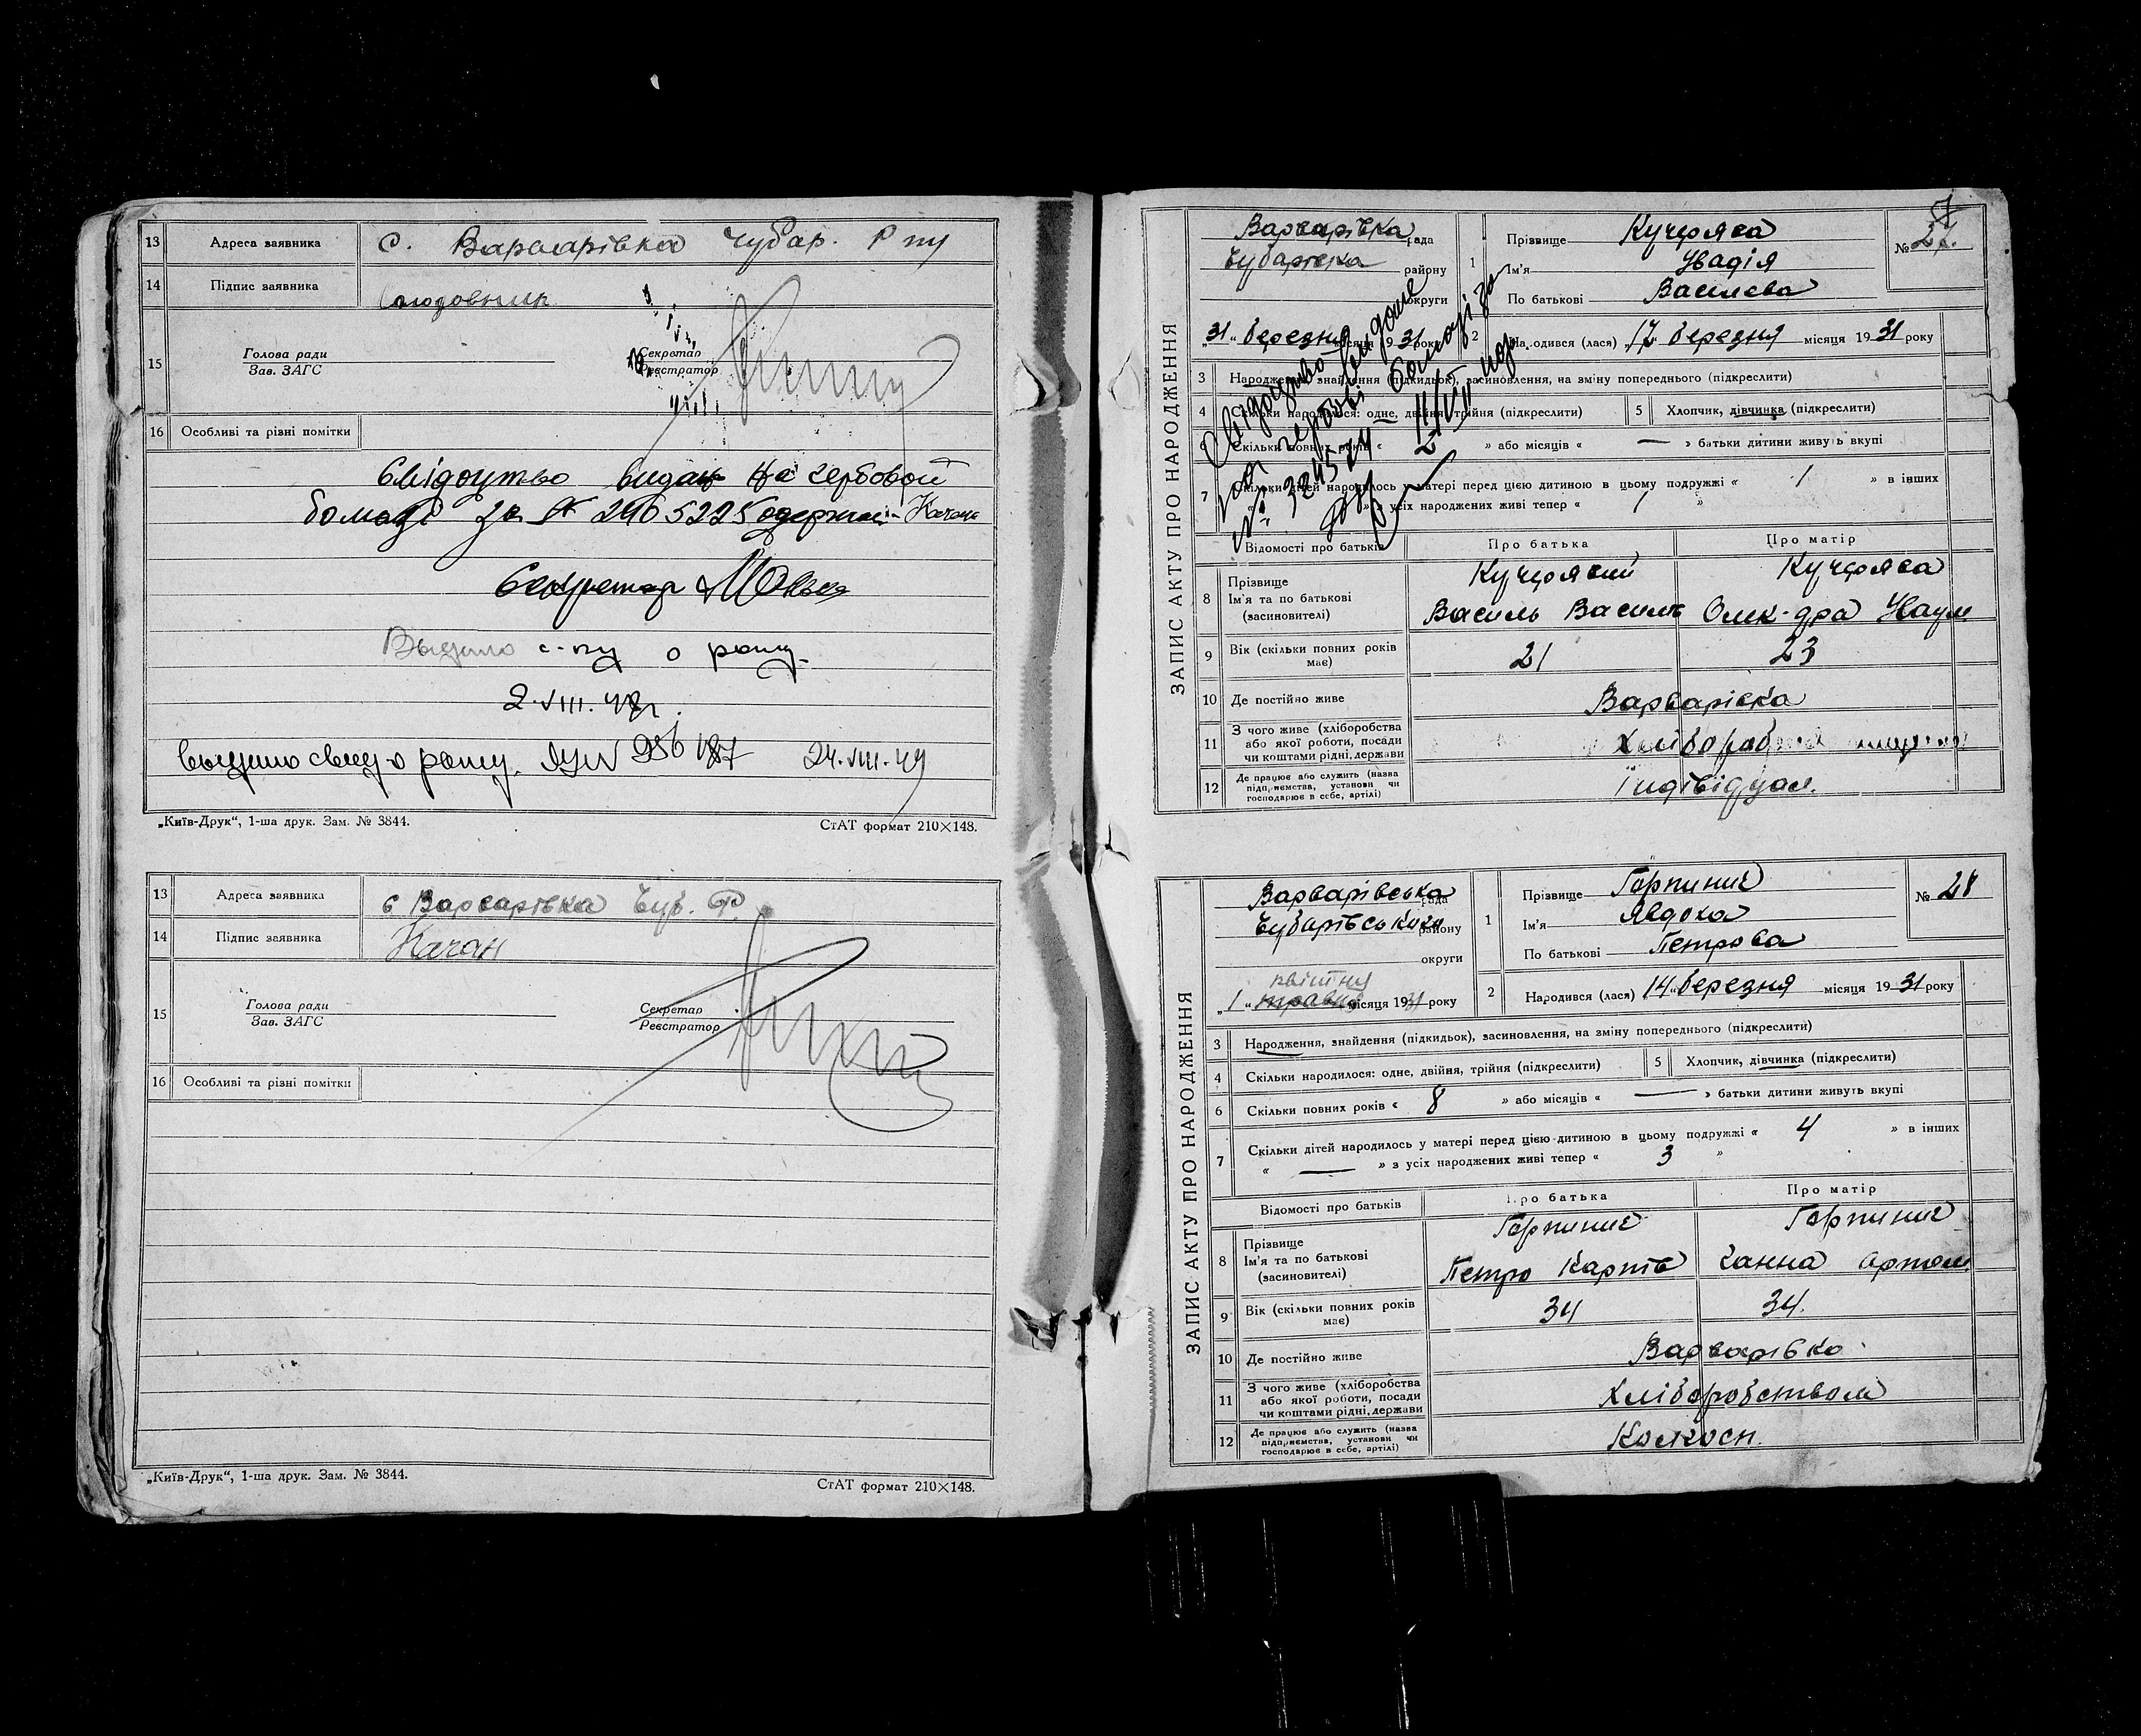 13 Адреса заявника с. Варварівка Чубар. Р ну
14 Підпис заявника Солодовник
15 Голова ради
Зав. ЗАГС
Секретар
Реєстратор
16 Особливі та різні помітки
Свідоцтво видан на гербовой
бомазі за № 2965225 одержал-Качана
Секретар
Выдано с-ву о рожд.
2.VIII.48г.
выдано свид о рожд. 936187 24.VIII.49
„Київ-Друк“, 1-ша друк. Зам. № 3844. СтАТ формат 210×148.
13 Адреса заявника с Варварівка Чуб. Р.
14 Підпис заявника Качан
15 Голова ради
Зав. ЗАГС
Секретар
Реєстратор
16 Особливі та різні помітки
„Київ-Друк“, 1-ша друк. Зам. № 3844. СтАТ формат 210×148.
ЗАПИС АКТУ ПРО НАРОДЖЕННЯ
Варварівка рада
Чубарівка району
округи
„31“ березня місяця 1931 року
1 Прізвище Кучерява
Ім'я
По батькові Василева
№ 27.
2 Народився (лася) „17“ березня місяця 1931 року
3 Народження, знайдення (підкидьок), засиновлення, на зміну попереднього (підкреслити)
4 Скільки народилося: одне, двійня, трійня (підкреслити) 5 Хлопчик, дівчинка (підкреслити)
6 Скільки повних років « 2 » або місяців « — » батьки дитини живуть вкупі
7 Скільки дітей народилось у матері перед цією дитиною в цьому подружжі « 1 » в інших
« » з усіх народжених живі тепер « 1 »
Свідоцтво видане
гербові бомазі за
№ 324574 11/VII
Відомості про батьків Про батька Про матір
8 Прізвище
Ім'я та по батькові
(засновителі)
Кучерявий Кучерява
Василь Василів Олек-дра Наум
9 Вік (скільки повних років має) 21 23
10 Де постійно живе Варварівка
11 З чого живе (хліборобства
або якої роботи, посади
чи коштами рідні, держави
12 Де працює або служить (назва
підприємства, установи чи
господарює в себе, артілі)
Індівідуал.
ЗАПИС АКТУ ПРО НАРОДЖЕННЯ
Варварівська рада
Чубарівського району
округи
„1“ травня квітня місяця 1931 року
1 Прізвище Горпинич
Ім'я Явдоха
По батькові Петрова
№ 28
2 Народився (лася) „14“ березня місяця 1931 року
3 Народження, знайдення (підкидьок), засиновлення, на зміну попереднього (підкреслити)
4 Скільки народилося: одне, двійня, трійня (підкреслити) 5 Хлопчик, дівчинка (підкреслити)
6 Скільки повних років « 8 » або місяців « — » батьки дитини живуть вкупі
7 Скільки дітей народилось у матері перед цією дитиною в цьому подружжі « 4 » в інших
« — » з усіх народжених живі тепер « 3 »
Відомості про батьків Про батька Про матір
8 Прізвище
Ім'я та по батькові
(засиновителі)
Горпинич Горпинич
Петро Карпів Ганна Артем
9 Вік (скільки повних років має) 34 34.
10 Де постійно живе Варварівка
11 З чого живе (хліборобства
або якої роботи, посади
чи коштами рідні, держави
Хліборобством
12 Де працює або служить (назва
підприємства, установи чи
господарює в себе, артілі)
Колхосп.